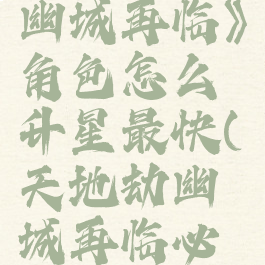 幽城再临》
角色怎么
升星最快(
天地劫幽
城再临必